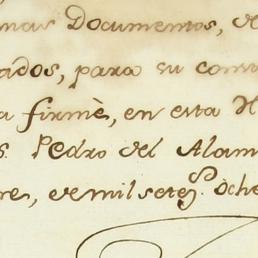 Documentos, de
ados, para su
a firmè, en esta
Pedro del Alam
re, de mil setes. Oche